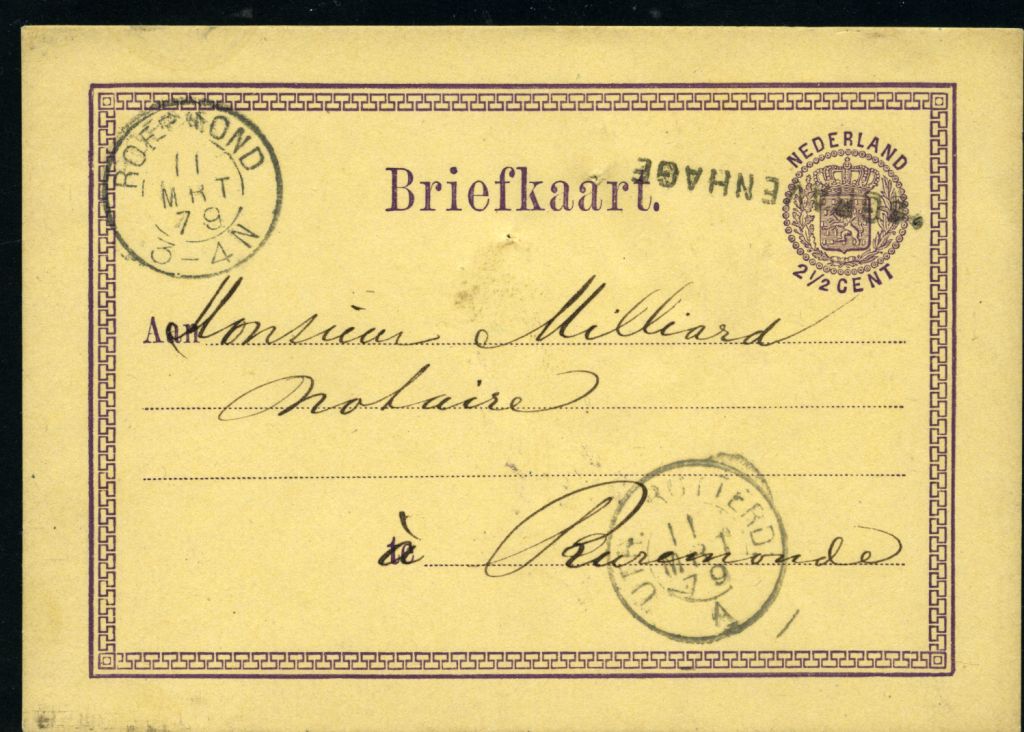 ROERMOND
11
MRT
79
3-4N
Briefkaart.
'S GRAVENHAGE
NEDERLAND
2½ CENT
Aan Monsieur Milliard
notaire
te à Ruremonde
UTR: ROTTERD
11
MRT
79
A